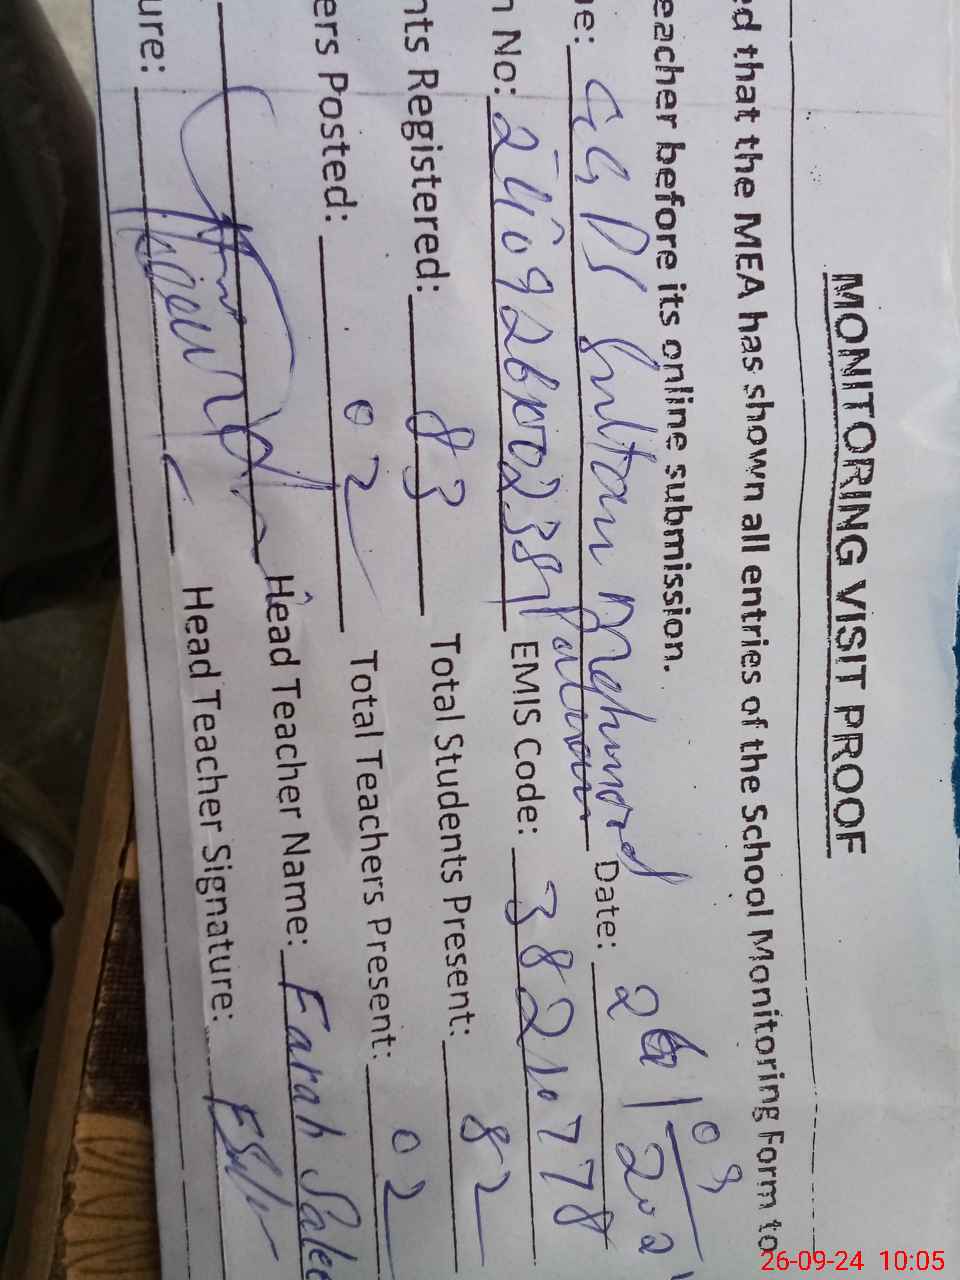 MONITORING VISIT PROOF
ed that the MEA has shown all entries of the School Monitoring Form to
eacher before its online submission.
e: GGPS Sultan Mehmood Date: 26/09/202
n No: EMIS Code: 38210778
nts Registered: 83 Total Students Present: 82
ers Posted: 02 Total Teachers Present: 02
Head Teacher Name: Farah Salee
ure: Head Teacher Signature:
26-09-24 10:05